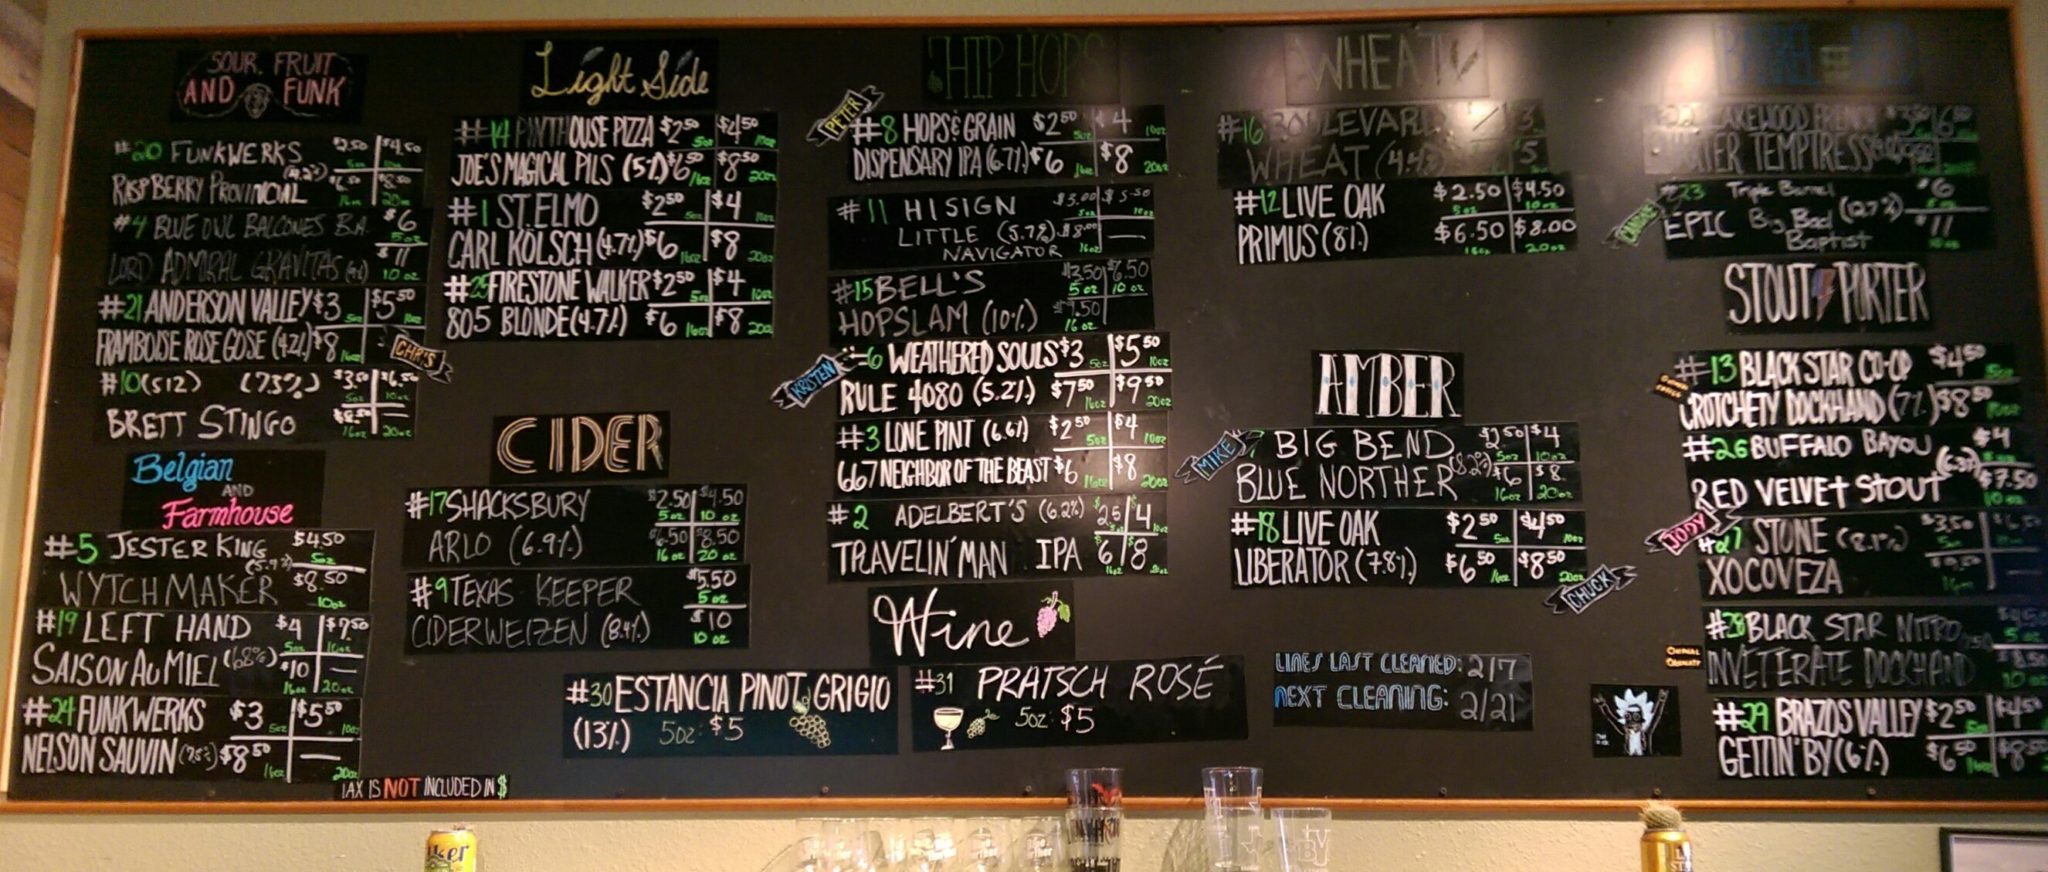 SOUR, FRUIT
AND FUNK
#20 FUNKWERKS $2.50 $4.50
5oz 10oz
RASPBERRY PROVINCIAL (4.2%) $6.50 $8.50
16oz 20oz
#4 BLUE OWL BALCONES B.A. $6
5oz
LORD ADMIRAL GRAVITAS $11
10oz
#21 ANDERSON VALLEY $3 $5.50
5oz 10oz
FRAMBOISE ROSE GOSE (4.2%) $8
16oz
CHRIS
#10 (512) (7.3%) $3.50 $6.50
5oz 10oz
BRETT STINGO —
16oz 20oz
Belgian
AND
Farmhouse
#5 JESTER KING (5.9%) $4.50
5oz
WYTCHMAKER $8.50
10oz
#19 LEFT HAND $4 $7.50
5oz 10oz
SAISON AU MIEL (6.8%) $10 —
16oz 20oz
#24 FUNKWERKS $3 $5.50
5oz 10oz
NELSON SAUVIN $8.50 —
16oz 20oz
TAX IS NOT INCLUDED IN $
Light Side
#14 PINTHOUSE PIZZA $2.50 $4.50
5oz 10oz
JOE'S MAGICAL PILS (5%) $6.50 $8.50
16oz 20oz
#1 ST. ELMO $2.50 $4
5oz 10oz
CARL KÖLSCH (4.7%) $6 $8
16oz 20oz
#25 FIRESTONE WALKER $2.50 $4
5oz 10oz
805 BLONDE (4.7%) $6 $8
16oz 20oz
CIDER
#17 SHACKSBURY $2.50 $4.50
5 oz 10 oz
ARLO (6.9%) $6.50 $8.50
16 oz 20 oz
#9 TEXAS KEEPER $5.50
5 oz
CIDERWEIZEN (8.4%) $10
10 oz
HIP HOPS
PETER
#8 HOPS & GRAIN $2.50 $4
5oz 10oz
DISPENSARY IPA (6.7%) $6 $8
16oz 20oz
#11 HI SIGN $3.00 $5.50
5oz 10oz
LITTLE (5.7%) $8.00 —
NAVIGATOR 16oz
#15 BELL'S $3.50 $6.50
5 oz 10 oz
HOPSLAM (10%) $9.50
16 oz
KRISTEN
#6 WEATHERED SOULS $3 $5.50
5oz 10oz
RULE 4080 (5.2%) $7.50 $9.50
16oz 20oz
#3 LONE PINT (6.6%) $2.50 $4
5oz 10oz
667 NEIGHBOR OF THE BEAST $6 $8
16oz 20oz
#2 ADELBERT'S (6.2%) $2.5 $4
5oz 10oz
TRAVELIN' MAN IPA $6 $8
16oz 20oz
Wine
#30 ESTANCIA PINOT GRIGIO
(13%) 5oz: $5
#31 PRATSCH ROSÉ
5oz: $5
WHEAT
#16 BOULEVARD
WHEAT (4.4%)
#12 LIVE OAK $2.50 $4.50
5oz 10oz
PRIMUS (8%) $6.50 $8.00
16oz 20oz
AMBER
MIKE
7 BIG BEND $2.50 $4
5oz 10oz
BLUE NORTHER (8.2%) $6 $8
16oz 20oz
#18 LIVE OAK $2.50 $4.50
5oz 10oz
LIBERATOR (7.8%) $6.50 $8.50
16oz 20oz
CHUCK
LINES LAST CLEANED: 2/7
NEXT CLEANING: 2/21
LAKEWOOD FRENCH
TEMPTRESS
CANDACE
#23 Triple Barrel $6
EPIC Big Bad (12.7%) $11
Baptist 10oz
STOUT PORTER
#13 BLACK STAR CO-OP $4.50
5oz
CROTCHETY DOCKHAND (7%) $8.50
10oz
#26 BUFFALO BAYOU $4
RED VELVET STOUT $7.50
10oz
JODY
#27 STONE (8.1%) $3.50
XOCOVEZA
#28 BLACK STAR NITRO
5 oz
INVETERATE DOCKHAND
10 oz
#29 BRAZOS VALLEY $2.50 $4.50
GETTIN' BY (6%) $6.50 $8.50